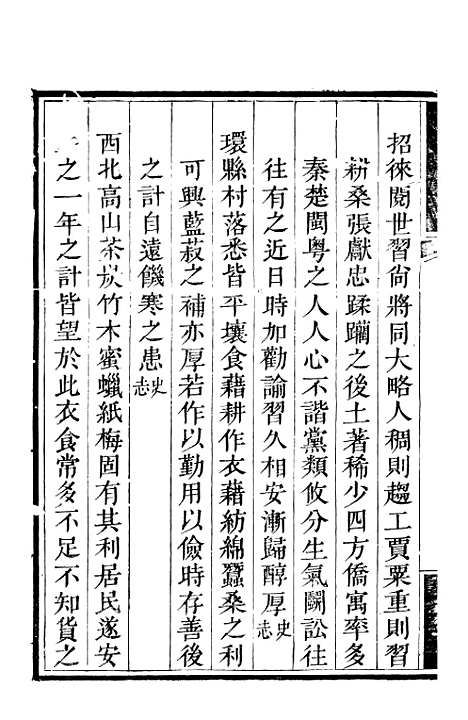 招徠閱世習尙將同大略人稠則趨工賈粟重則習
耕桑張獻忠蹂躪之後土著稀少四方僑寓率多
秦楚閩粵之人人心不諧黨類攸分生氣鬭訟往
往有之近日時加勸諭習久相安漸歸醇厚史志
環縣村落悉皆平壤食藉耕作衣藉紡綿蠶桑之利
可興藍菽之補亦厚若作以勤用以儉時存善後
之計自遠饑寒之患史志
西北高山茶於竹木蜜蠟紙梅固有其利居民遂安
之一年之計皆望於此衣食常多不足不知貨之